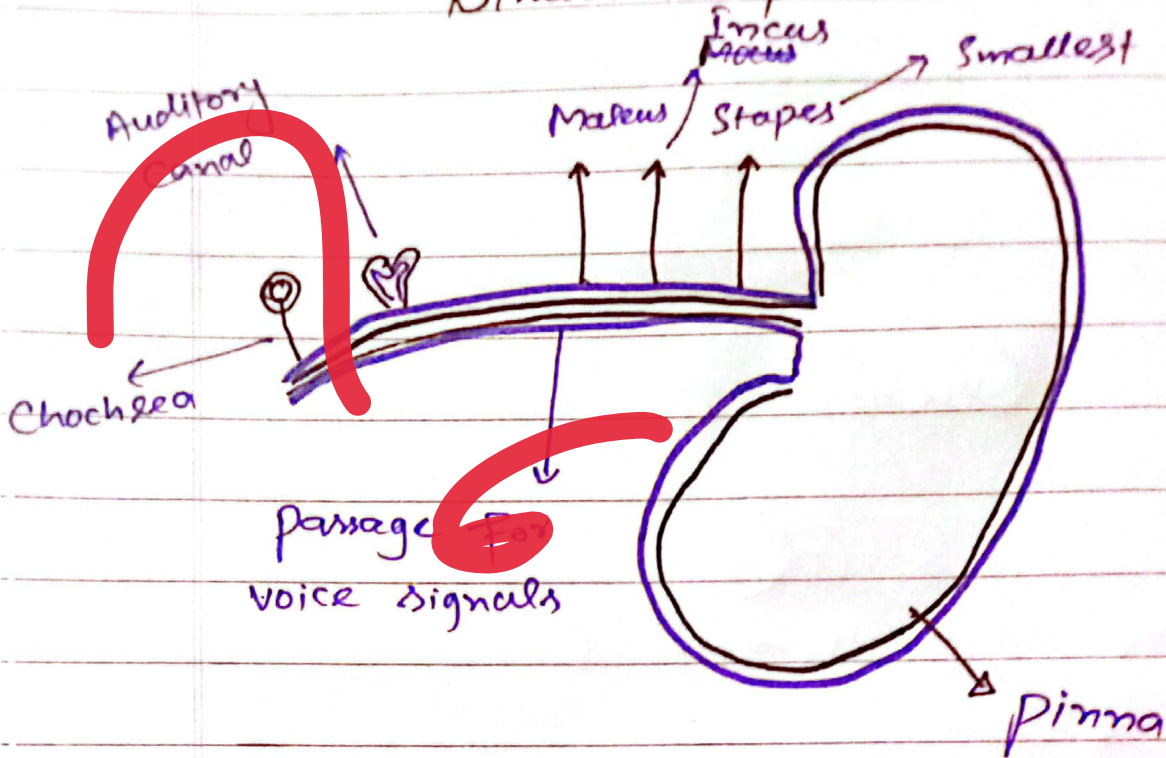 Incus
Smallest
Auditory
Canal
Maleus
Stapes
Chochlea
Passage For
voice signals
Pinna